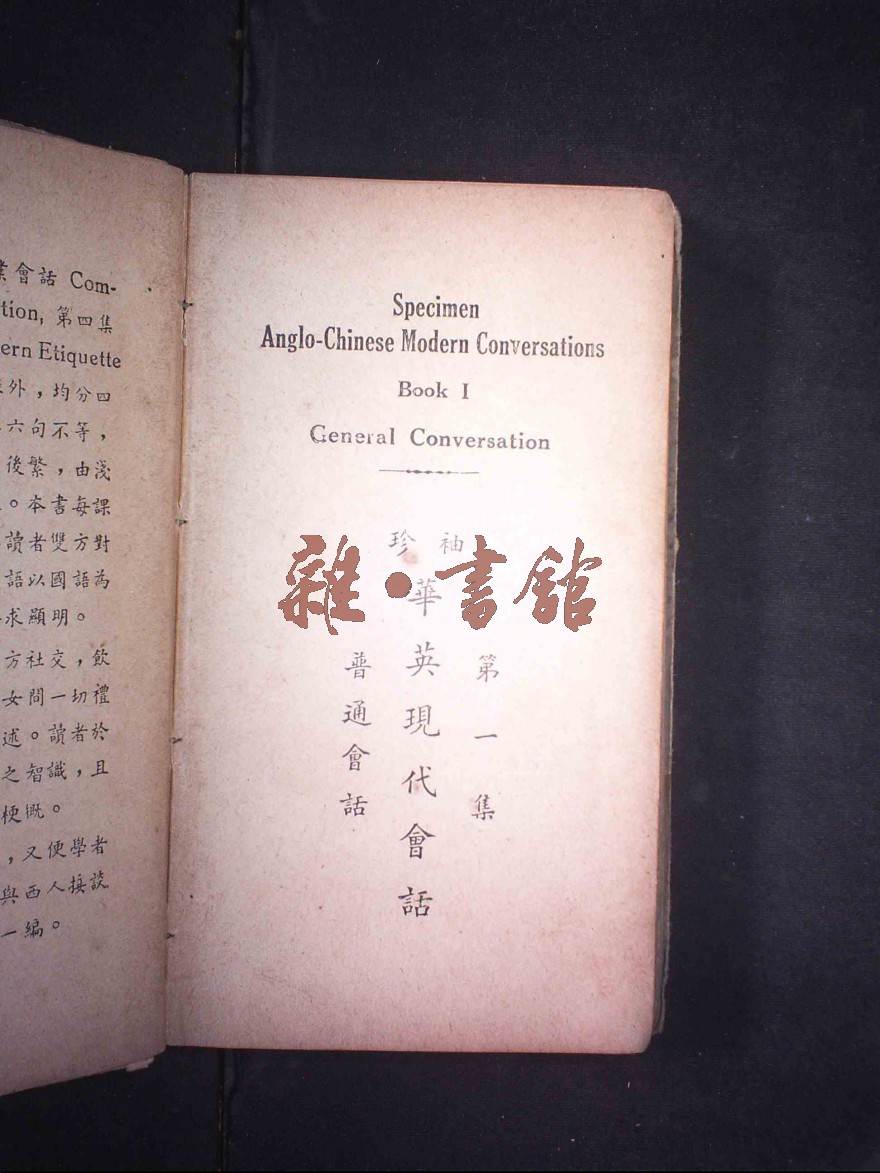 業會話 Com-
tion, 第四集
ern Etiquette
外，均分四
六句不等，
後繁，由淺
。本書每課
讀者雙方對
語以國語為
求顯明。
方社交，飲
女間一切禮
述。讀者於
之智識，且
梗概。
，又便學者
與西人接談
一編。
Specimen
Anglo-Chinese Modern Conversations
Book I
General Conversation
袖珍
華英現代會話
第一集
普通會話
雜·書館